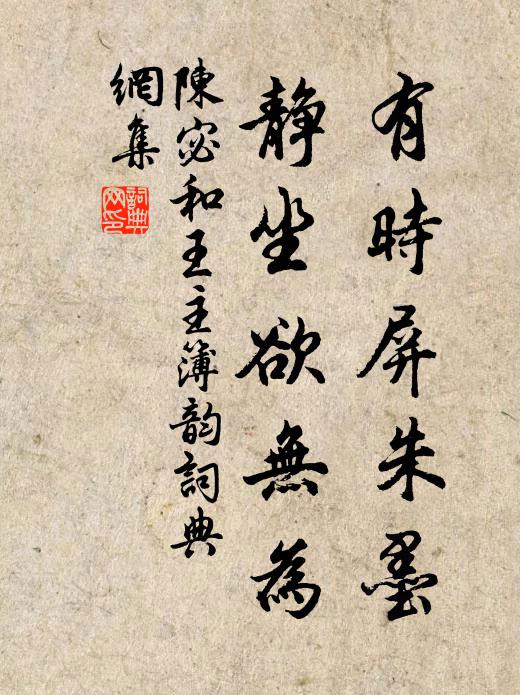 有時屏朱墨
靜坐欲無為
陳宓和王主簿韵詞典
網集
詞典
网印